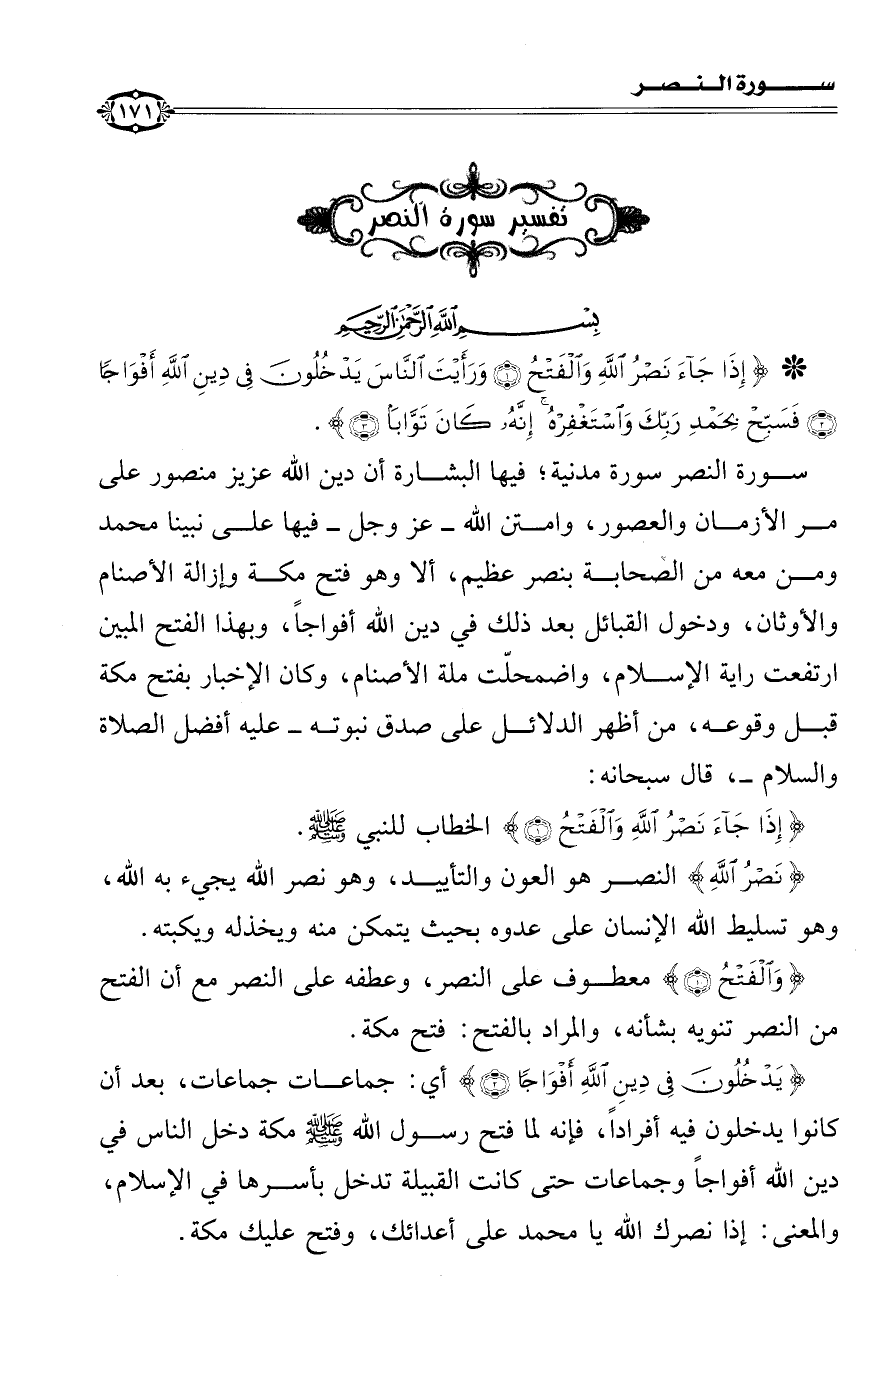 سورة النصر
١٧١
تفسير سورة النصر
بِسْمِ ٱللَّهِ ٱلرَّحْمَٰنِ ٱلرَّحِيمِ
❋ ﴿ إِذَا جَآءَ نَصْرُ ٱللَّهِ وَٱلْفَتْحُ ۝١ وَرَأَيْتَ ٱلنَّاسَ يَدْخُلُونَ فِى دِينِ ٱللَّهِ أَفْوَاجًا
۝٢ فَسَبِّحْ بِحَمْدِ رَبِّكَ وَٱسْتَغْفِرْهُ ۚ إِنَّهُۥ كَانَ تَوَّابًۢا ۝٣ ﴾ .
سورة النصر سورة مدنية؛ فيها البشارة أن دين الله عزيز منصور على
مر الأزمان والعصور، وامتن الله ـ عز وجل ـ فيها على نبينا محمد
ومن معه من الصحابة بنصر عظيم، ألا وهو فتح مكة وإزالة الأصنام
والأوثان، ودخول القبائل بعد ذلك في دين الله أفواجاً، وبهذا الفتح المبين
ارتفعت راية الإسلام، واضمحلّت ملة الأصنام، وكان الإخبار بفتح مكة
قبل وقوعه، من أظهر الدلائل على صدق نبوته ـ عليه أفضل الصلاة
والسلام ـ، قال سبحانه:
﴿ إِذَا جَآءَ نَصْرُ ٱللَّهِ وَٱلْفَتْحُ ۝١ ﴾ الخطاب للنبي ﷺ.
﴿ نَصْرُ ٱللَّهِ ﴾ النصر هو العون والتأييد، وهو نصر الله يجيء به الله،
وهو تسليط الله الإنسان على عدوه بحيث يتمكن منه ويخذله ويكبته.
﴿ وَٱلْفَتْحُ ۝١ ﴾ معطوف على النصر، وعطفه على النصر مع أن الفتح
من النصر تنويه بشأنه، والمراد بالفتح: فتح مكة.
﴿ يَدْخُلُونَ فِى دِينِ ٱللَّهِ أَفْوَاجًا ۝٢ ﴾ أي: جماعات جماعات، بعد أن
كانوا يدخلون فيه أفراداً، فإنه لما فتح رسول الله ﷺ مكة دخل الناس في
دين الله أفواجاً وجماعات حتى كانت القبيلة تدخل بأسرها في الإسلام،
والمعنى: إذا نصرك الله يا محمد على أعدائك، وفتح عليك مكة.